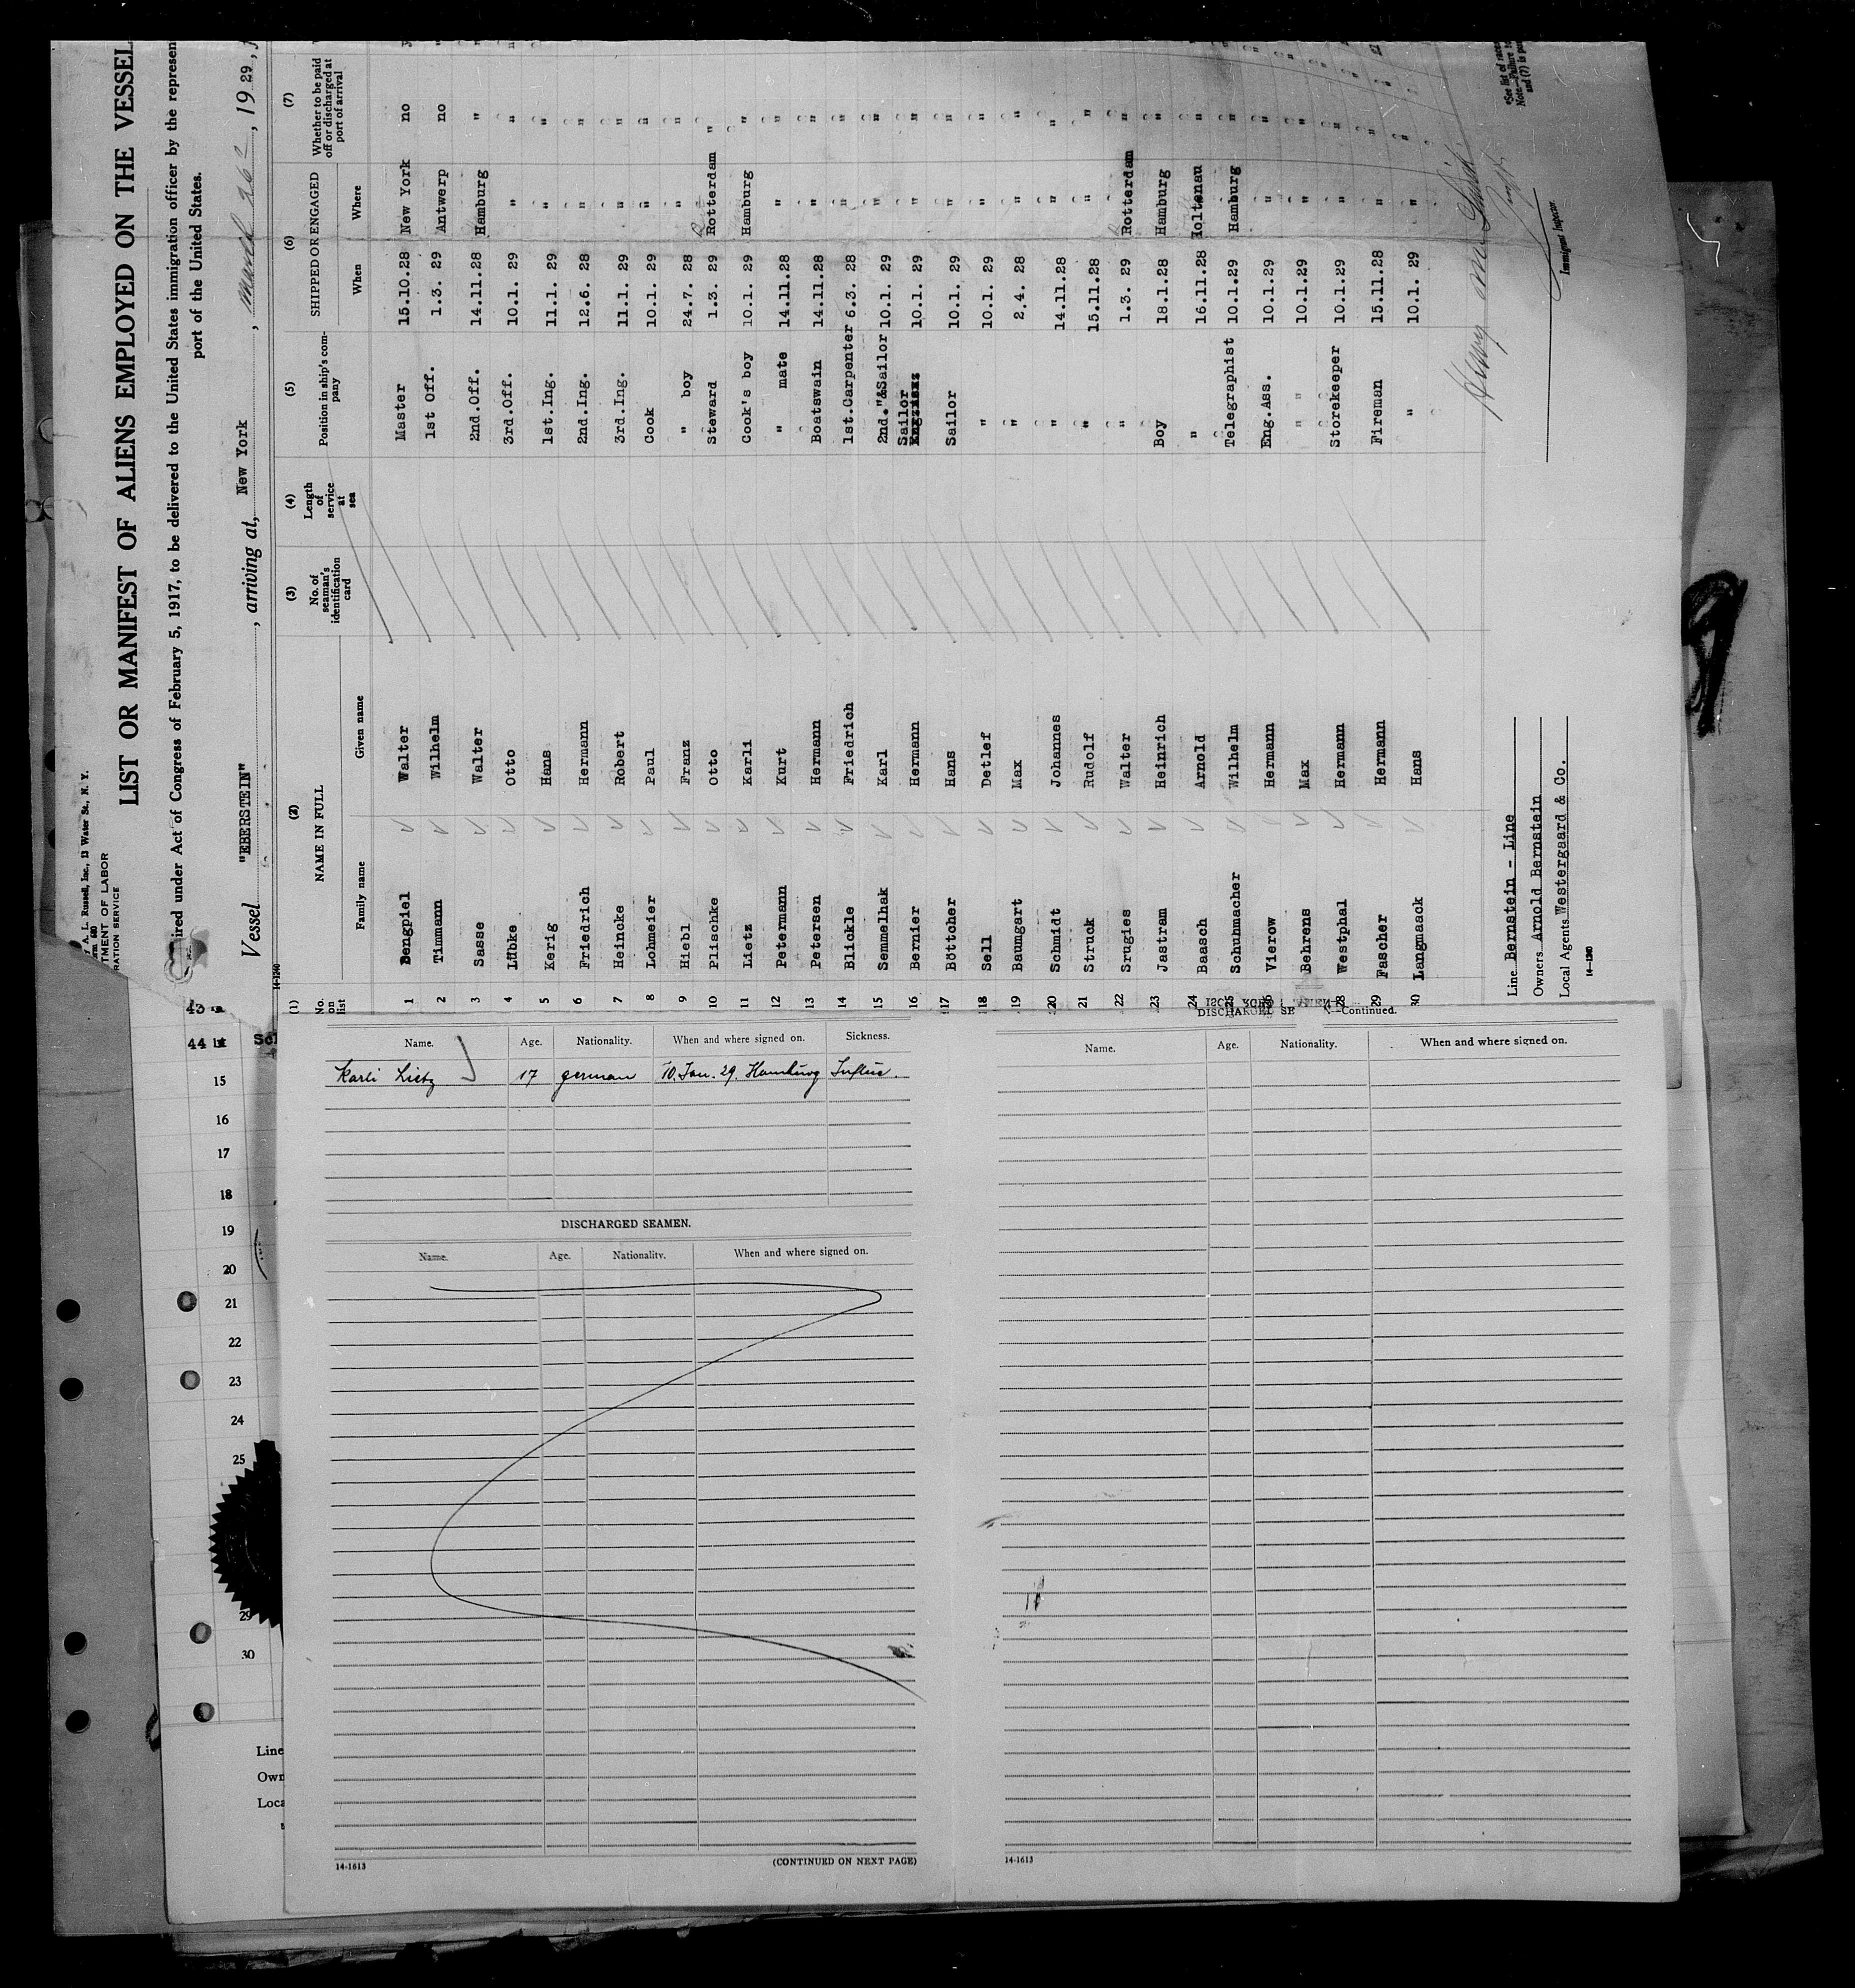 A. L. Russell, Inc., 13 Water St., N. Y.
TMENT OF LABOR
RATION SERVICE
LIST OR MANIFEST OF ALIENS EMPLOYED ON THE VESSEL
ired under Act of Congress of February 5, 1917, to be delivered to the United States immigration officer by the represen
port of the United States.
Vessel "EBERSTEIN", arriving at, New York, March 26, 1929,
14-1240
(1) (2) (3) (4) (5) (6) (7)
No. on list NAME IN FULL No. of seaman's identification card Length of service at sea Position in ship's company SHIPPED OR ENGAGED Whether to be paid off or discharged at port of arrival
Family name Given name When Where
1 Dengpiel Walter Master 15.10.28 New York no
2 Timmann Wilhelm 1st Off. 1.3. 29 Antwerp no
3 Sasse Walter 2nd.Off. 14.11.28 Hamburg "
4 Lübke Otto 3rd.Off. 10.1. 29 " "
5 Kerig Hans 1st.Ing. 11.1. 29 " "
6 Friedrich Hermann 2nd.Ing. 12.6. 28 " "
7 Heincke Robert 3rd.Ing. 11.1. 29 " "
8 Lohmeier Paul Cook 10.1. 29 " "
9 Hiebl Franz " boy 24.7. 28 " "
10 Plischke Otto Steward 1.3. 29 Rotterdam "
11 Lietz Karli Cook's boy 10.1. 29 Hamburg "
12 Petermann Kurt " mate 14.11.28 " "
13 Petersen Hermann Boatswain 14.11.28 " "
14 Blickle Friedrich 1st.Carpenter 6.3. 28 " "
15 Semmelhak Karl 2nd."&Sailor 10.1. 29 " "
16 Bernier Hermann Sailor 10.1. 29 " "
17 Böttcher Hans Sailor 10.1. 29 " "
18 Sell Detlef " 10.1. 29 " "
19 Baumgart Max " 2.4. 28 " "
20 Schmidt Johannes " 14.11.28 " "
21 Struck Rudolf " 15.11.28 " "
22 Srugies Walter " 1.3. 29 Rotterdam "
23 Jastram Heinrich Boy 18.1.28 Hamburg "
24 Baasch Arnold " 16.11.28 Holtenau "
25 Schuhmacher Wilhelm Telegraphist 10.1.29 Hamburg "
26 Vierow Hermann Eng.Ass. 10.1.29 " "
27 Behrens Max " " 10.1.29 " "
28 Westphal Hermann Storekeeper 10.1.29 " "
29 Fascher Hermann Fireman 15.11.28 " "
30 Langmaack Hans " 10.1. 29 " "
Line Bernstein - Line
Owners Arnold Bernstein
Local Agents Westergaard & Co.
14-1240
Immigrant Inspector.
*See list of races
Note.—Failure to
and (7) is pu
43
44
15
16
17
18
19
20
21
22
23
24
25
29
30
Line
Own
Loca
Name. Age. Nationality. When and where signed on. Sickness.
Karli Lietz 17 german 10. Jan. 29. Hamburg
DISCHARGED SEAMEN.
Name. Age. Nationality. When and where signed on.
14-1613 (CONTINUED ON NEXT PAGE)
DISCHARGED SE N—Continued.
Name. Age. Nationality. When and where signed on.
14-1613